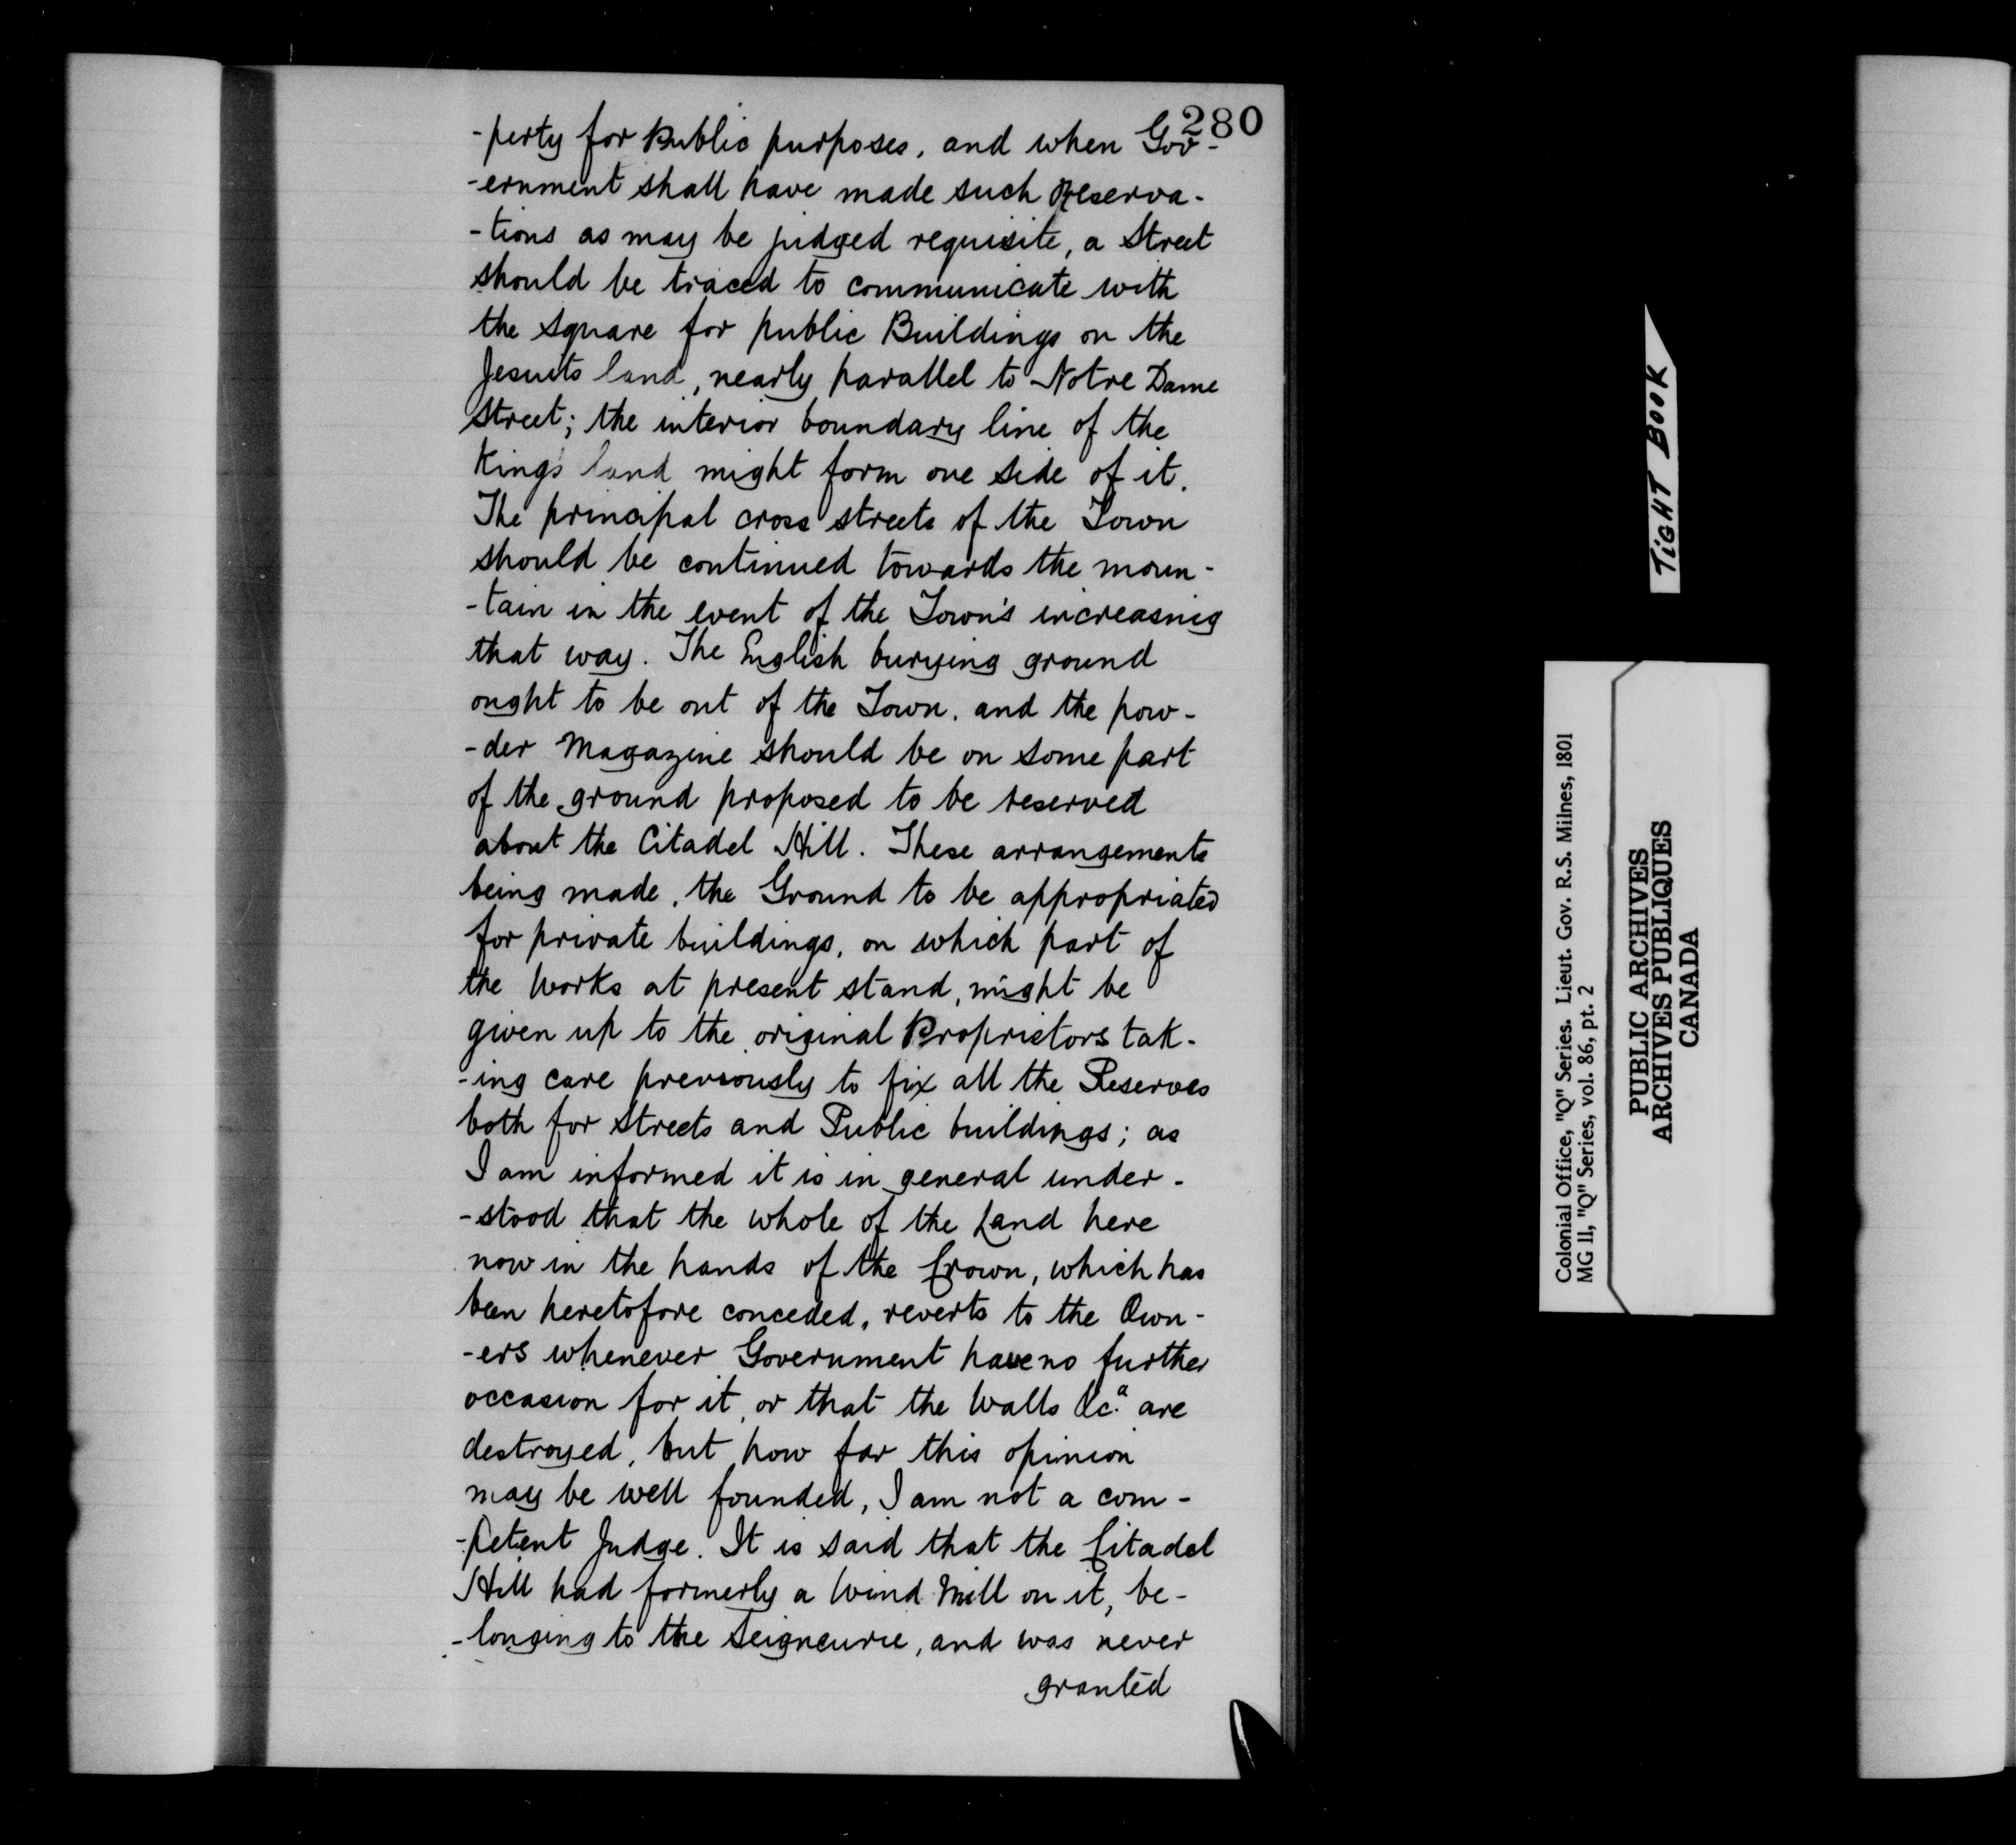 280
-perty for Public purposes, and when Gov-
-ernment shall have made such Reserva-
-tions as may be judged requisite, a Street
should be traced to communicate with
the Square for public Buildings on the
Jesuits land, nearly parallel to Notre Dame
Street; the interior boundary line of the
King's land might form one side of it.
The principal cross streets of the Town
should be continued towards the moun-
-tain in the event of the Town's increasing
that way. The English burying ground
ought to be out of the Town, and the pow-
-der Magazine should be on some part
of the ground proposed to be reserved
about the Citadel Hill. These arrangements
being made, the Ground to be appropriated
for private buildings, on which part of
the Works at present stand, might be
given up to the original Proprietors tak-
-ing care previously to fix all the Reserves
both for Streets and Public buildings; as
I am informed it is in general under-
-stood that the whole of the Land here
now in the hands of the Crown, which has
been heretofore conceded, reverts to the Own-
-ers whenever Government have no further
occasion for it, or that the Walls &c.a are
destroyed, but how far this opinion
may be well founded, I am not a com-
-petent Judge. It is said that the Citadel
Hill had formerly a Wind Mill on it, be-
-longing to the Seigneurie, and was never
granted
TIGHT BOOK
Colonial Office, "Q" Series. Lieut. Gov. R.S. Milnes, 1801
MG 11, "Q" Series, vol. 86, pt. 2
PUBLIC ARCHIVES
ARCHIVES PUBLIQUES
CANADA